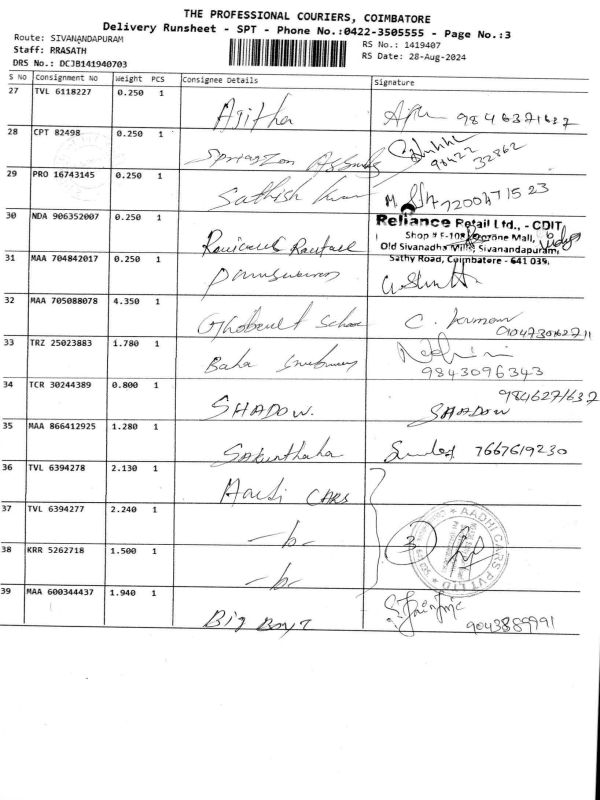 THE PROFESSIONAL COURIERS, COIMBATORE
Delivery Runsheet - SPT - Phone No.:0422-3505555 - Page No.:3
Route: SIVANANDAPURAM
Staff: PRASATH
DRS No.: DCJB141940703
RS No.: 1419407
RS Date: 28-Aug-2024
S No Consignment No Weight PCS Consignee Details Signature
27 TVL 6118227 0.250 1 Ajitha 9846371637
28 CPT 82498 0.250 1 98422 32862
29 PRO 16743145 0.250 1 Sathish Kumar 7200471523
30 NDA 906352007 0.250 1
Reliance Retail Ltd., - CDIT
Shop # F-108 Prozone Mall,
Old Sivanadha Mills, Sivanandapuram,
Sathy Road, Coimbatore - 641 035.
31 MAA 704842017 0.250 1
32 MAA 705088078 4.350 1 School C.
33 TRZ 25023883 1.780 1 Baba 9843096343
34 TCR 30244389 0.800 1 SHADOW. 9846271637 SHADOW
35 MAA 866412925 1.280 1 Sakunthala 7667619230
36 TVL 6394278 2.130 1 Maruti CARS
37 TVL 6394277 2.240 1 -b- 3
AADHI CARS PVT LTD
38 KRR 5262718 1.500 1 -b-
39 MAA 600344437 1.940 1 Big Boyz 9043889991